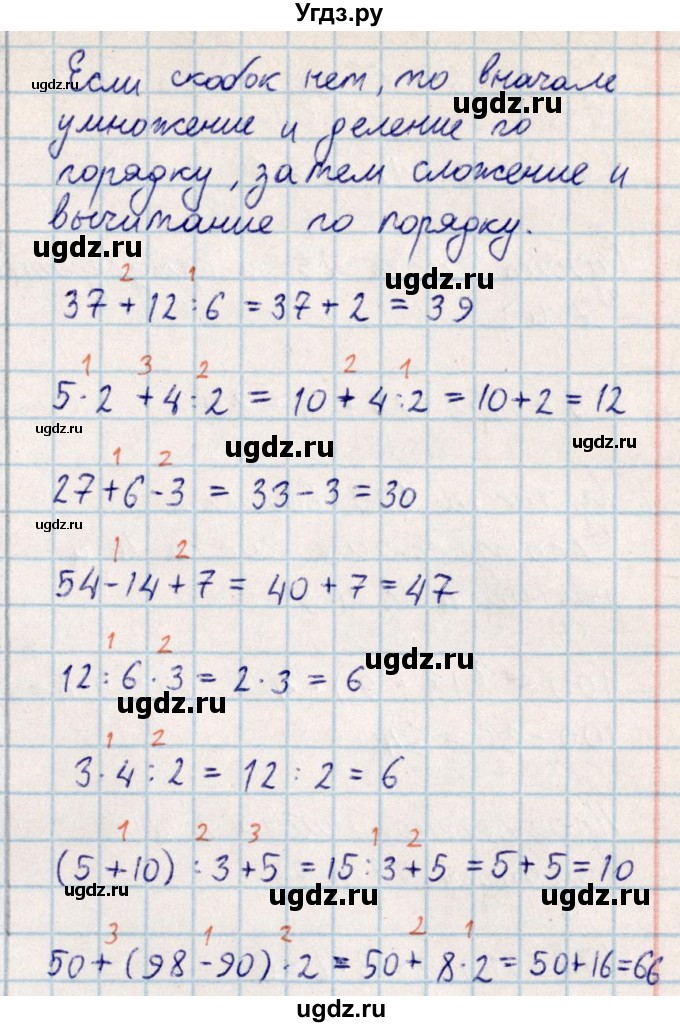 Угдз.ру
Если скобок нет, то вначале
умножение и деление по
порядку, затем сложение и
вычитание по порядку.
2 1
37 + 12 : 6 = 37 + 2 = 39
1 3 2 2 1
5 · 2 + 4 : 2 = 10 + 4 : 2 = 10 + 2 = 12
1 2
27 + 6 - 3 = 33 - 3 = 30
1 2
54 - 14 + 7 = 40 + 7 = 47
1 2
12 : 6 · 3 = 2 · 3 = 6
1 2
3 · 4 : 2 = 12 : 2 = 6
1 2 3 1 2
(5 + 10) : 3 + 5 = 15 : 3 + 5 = 5 + 5 = 10
3 1 2 2 1
50 + (98 - 90) · 2 = 50 + 8 · 2 = 50 + 16 = 66
ugdz.ru
ugdz.ru
ugdz.ru
ugdz.ru
ugdz.ru
ugdz.ru
ugdz.ru
ugdz.ru
ugdz.ru
ugdz.ru
ugdz.ru
ugdz.ru
ugdz.ru
ugdz.ru